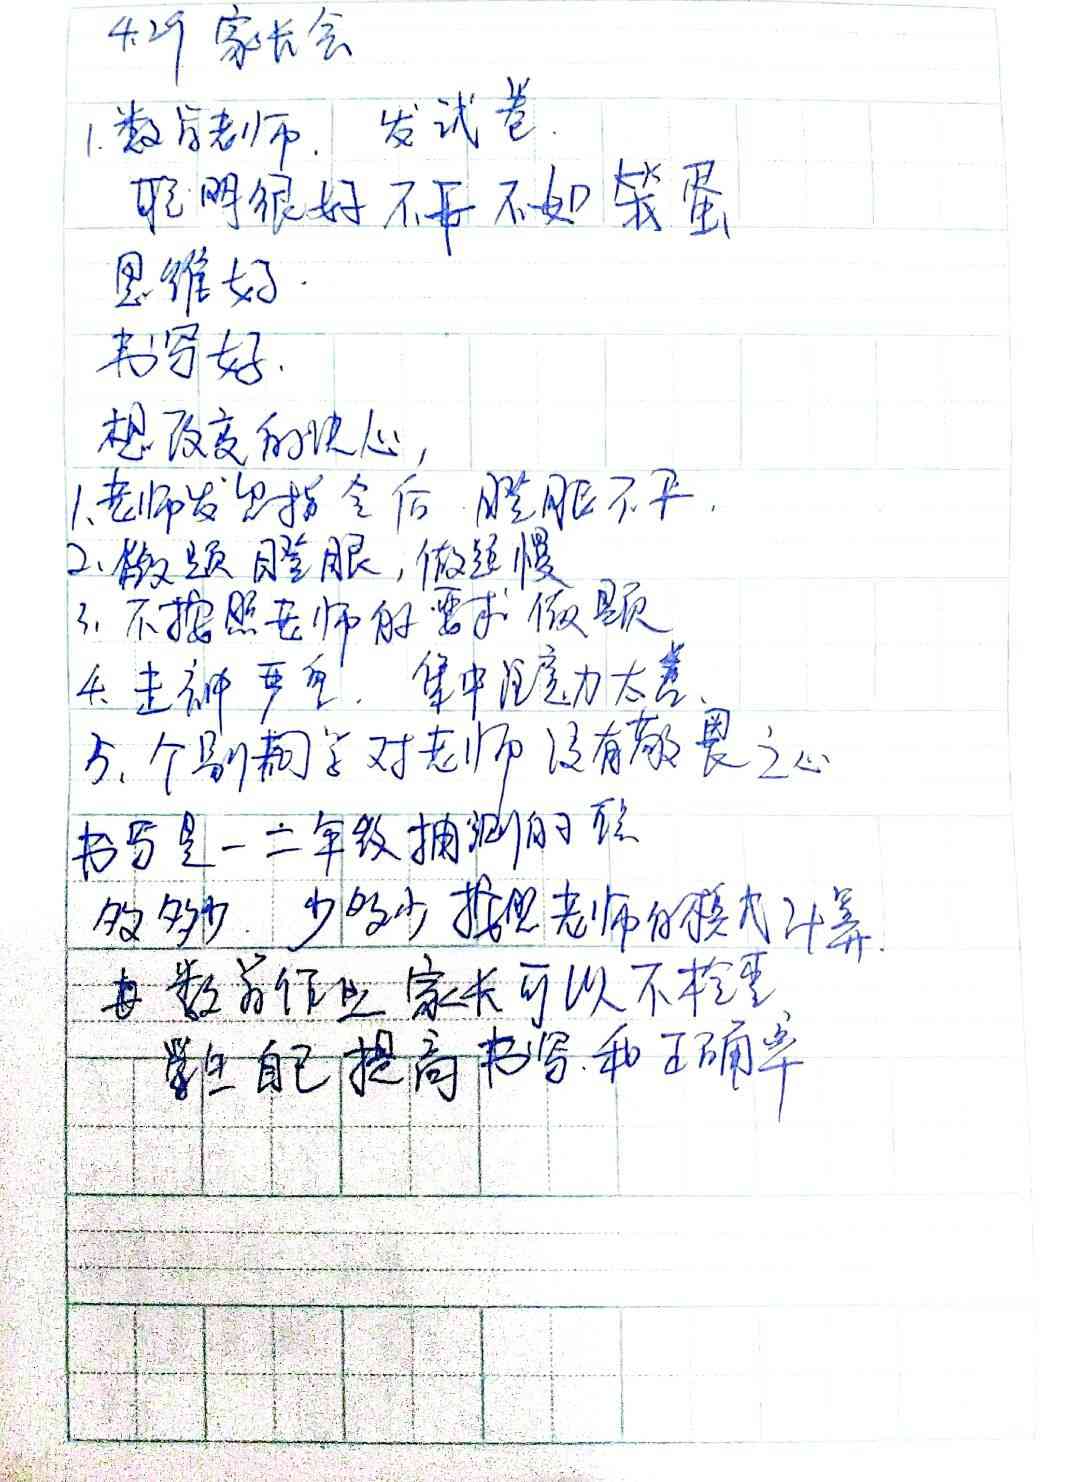 4.29 家长会
1.数学老师. 发试卷.
聪明很好 不开 不如笨蛋
思维好.
书写好.
想改变的决心,
1、老师发出指令后
2、做题瞪眼,做题慢
3、不按照老师的要求做题
4、走神严重. 集中注意力太差、
5、个别同学对老师没有敬畏之心
书写是一二年级抽测的
按照老师的模式计算.
数学作业家长可以不检查
学生自己提高书写.和正确率